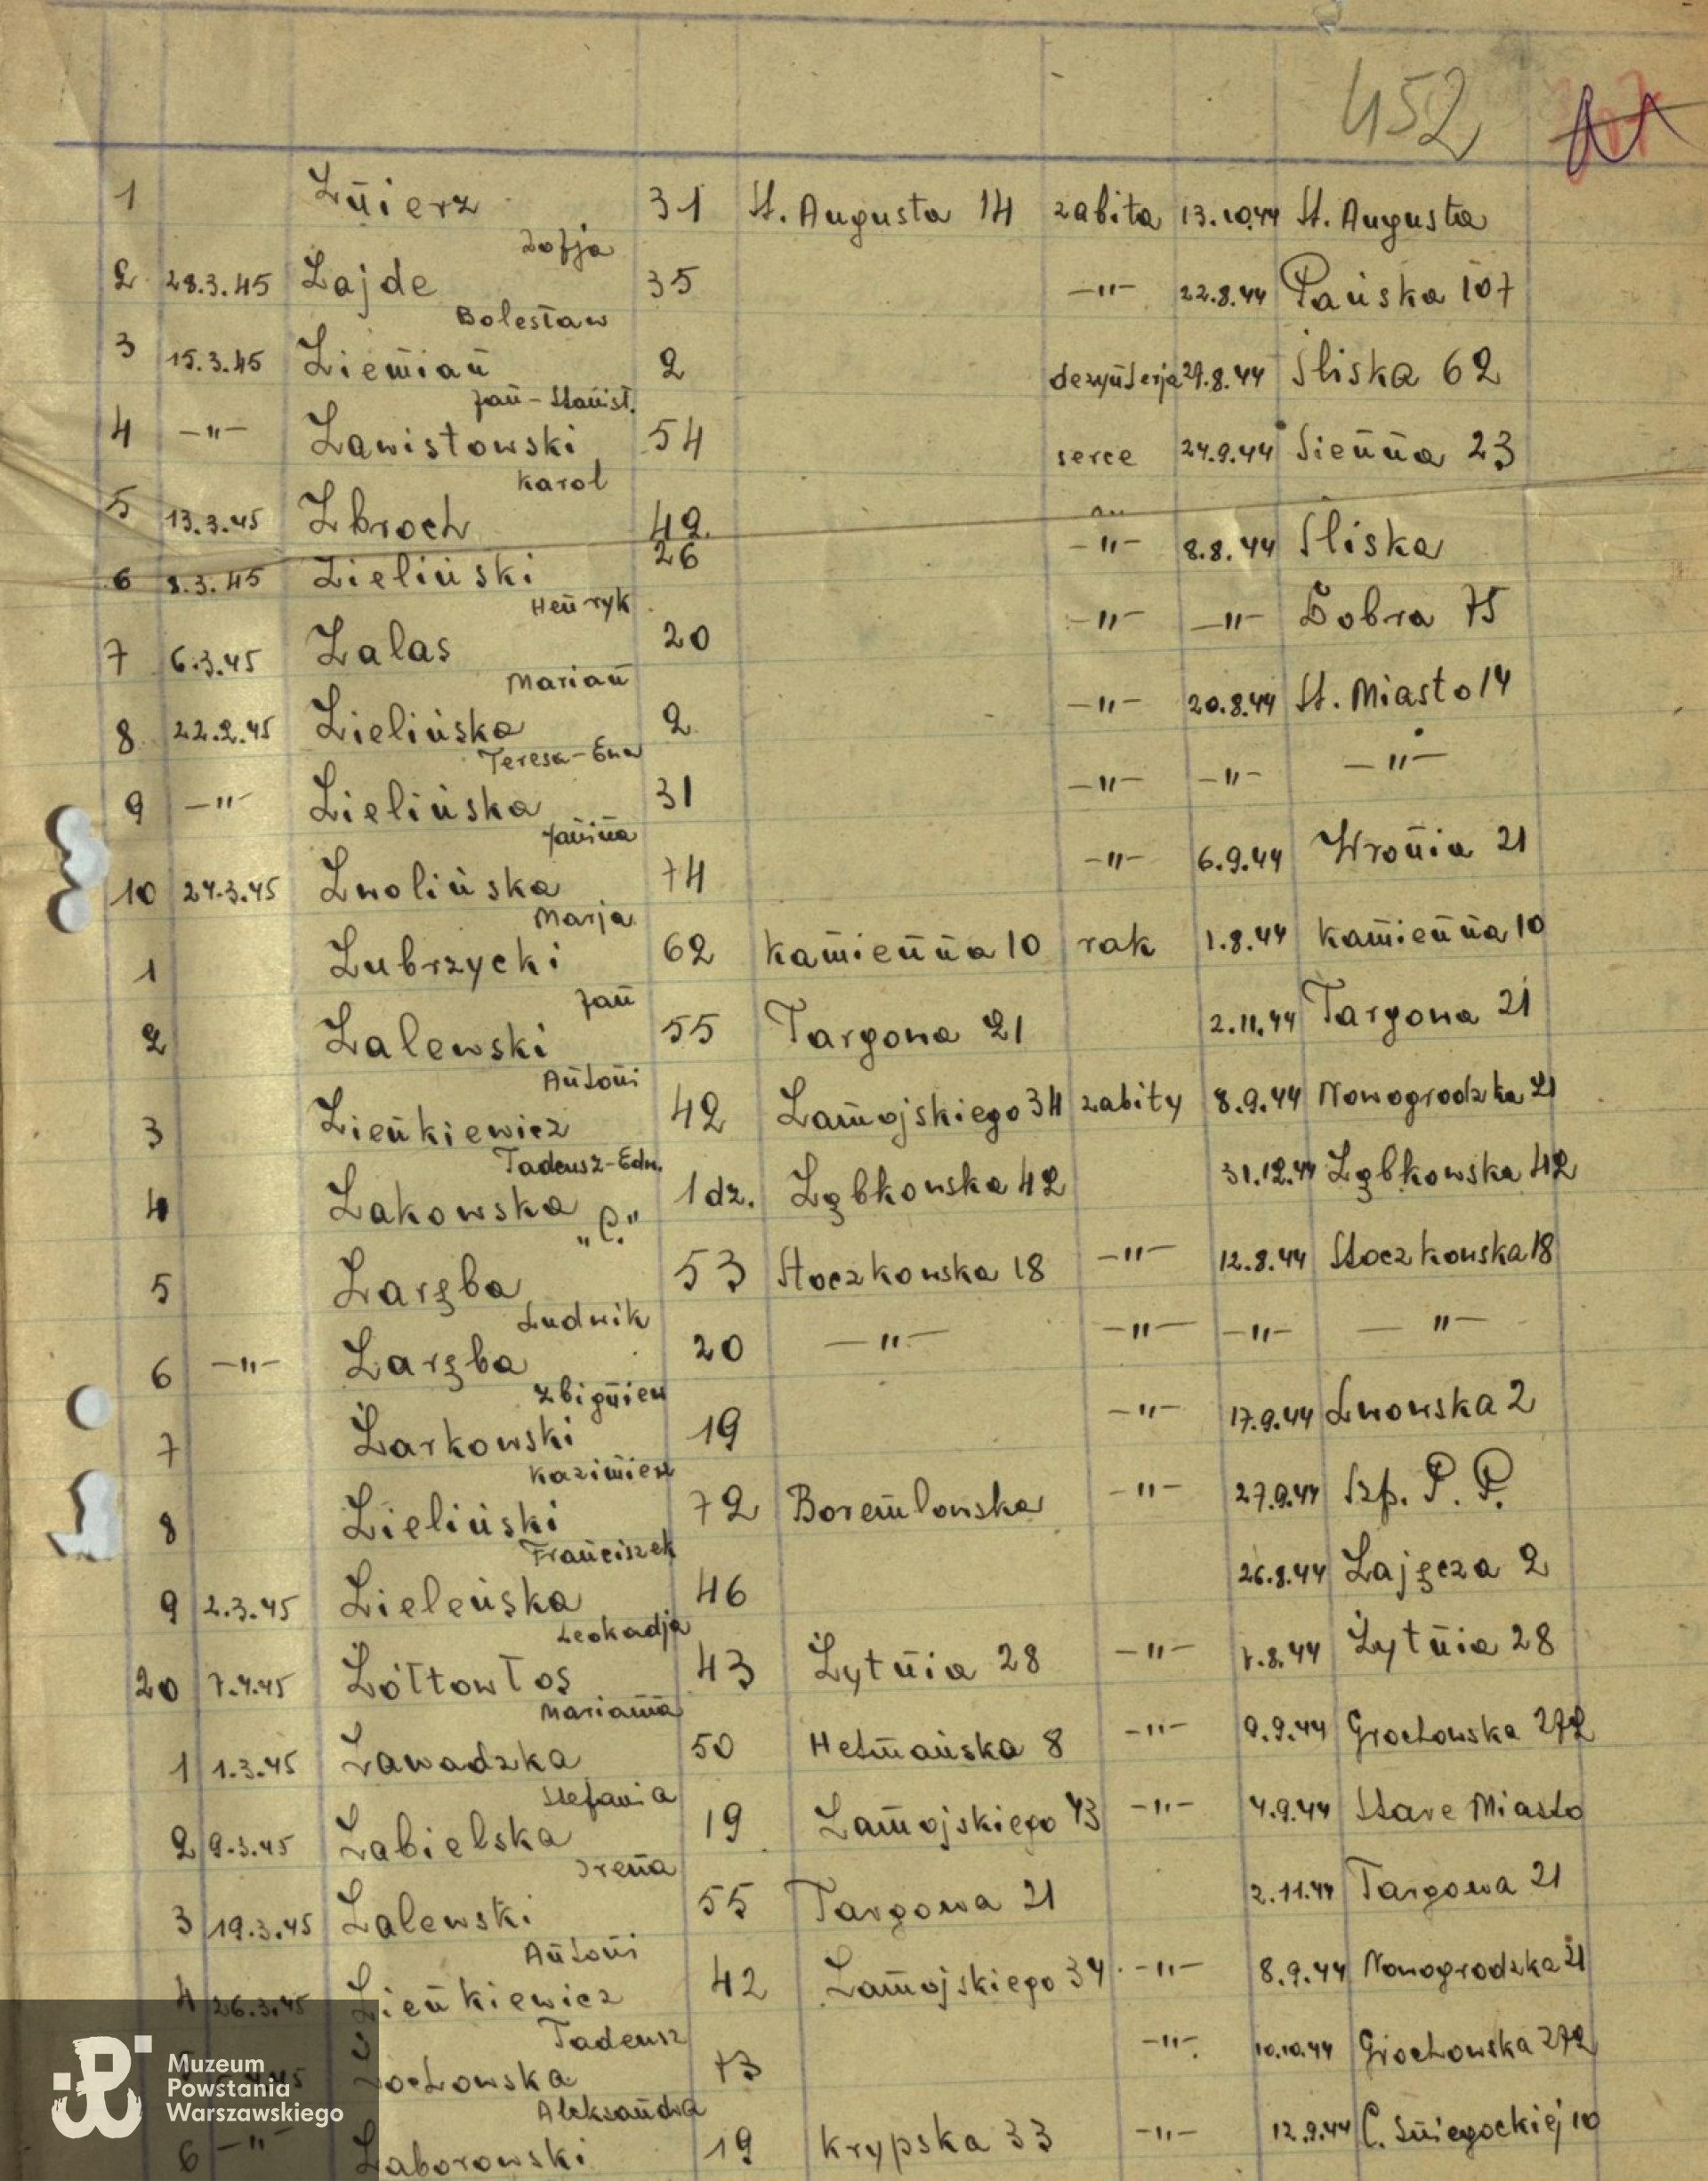 452
1 Żnierz 31 St. Augusta 14 zabita 13.10.44 St. Augusta
Zofja
2 28.3.45 Zajde 35 -"- 22.8.44 Pańska 107
Bolesław
3 15.3.45 Ziemian 2 dezynterja 29.8.44 Śliska 62
Jan-Stanisł.
4 -"- Zawistowski 54 serce 24.9.44 Sienna 23
Karol
5 13.3.45 Zbroch 42 -"- 8.8.44 Śliska
6 8.3.45 Zieliński 26 -"- -"- Dobra 75
Henryk
7 6.3.45 Zalas 20 -"- 20.8.44 St. Miasto 14
Marian
8 22.2.45 Zielińska 2 -"- -"- -"-
Teresa-Ewa
9 -"- Zielińska 31
Janina
10 24.3.45 Zwolińska 74 -"- 6.9.44 Wronia 21
Marja
1 Zubrzycki 62 Kamienna 10 rak 1.8.44 Kamienna 10
Jan
2 Zalewski 55 Targowa 21 2.11.44 Targowa 21
Antoni
3 Zienkiewicz 42 Zamojskiego 34 zabity 8.9.44 Nowogrodzka 21
Tadeusz-Edw.
4 Zakowska 1 dz. Ząbkowska 42 31.12.44 Ząbkowska 42
"C."
5 Zaręba 53 Stoczkowska 18 -"- 12.8.44 Stoczkowska 18
Ludwik
6 -"- Zaręba 20 -"- -"- -"- -"-
Zbigniew
7 Żarkowski 19 -"- 17.9.44 Lwowska 2
Kazimierz
8 Zieliński 72 Boremlowska -"- 27.9.44 Szp. P. P.
Franciszek
9 2.3.45 Zieleńska 46 26.8.44 Zajęcza 2
Leokadja
20 7.4.45 Żółtowłos 43 Żytnia 28 -"- 7.8.44 Żytnia 28
Marianna
1 1.3.45 Zawadzka 50 Hetmańska 8 -"- 9.9.44 Grochowska 272
Stefania
2 9.3.45 Zabielska 19 Zamojskiego 43 -"- 4.9.44 Stare Miasto
Irena
3 19.3.45 Zalewski 55 Targowa 21 2.11.44 Targowa 21
Antoni
4 26.3.45 Zienkiewicz 42 Zamojskiego 34 -"- 8.9.44 Nowogrodzka 21
Tadeusz
Żochowska 73 -"- 10.10.44 Grochowska 272
Aleksandra
6 -"- Zaborowski 19 Krypska 33 -"- 12.9.44 C. Śniegockiej 10
Muzeum
Powstania
Warszawskiego